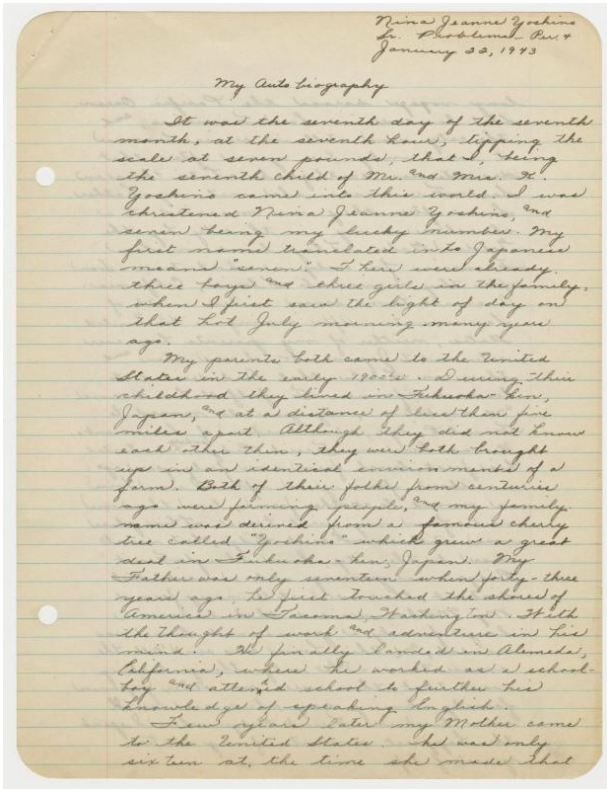 Nina Jeanne Yoshino
Sr. Problems - Per. 4
January 22, 1943
My Autobiography
It was the seventh day of the seventh
month, at the seventh hour, tipping the
scale at seven pounds, that I, being
the seventh child of Mr. and Mrs. K.
Yoshino came into this world. I was
christened Nina Jeanne Yoshino, and
seven being my lucky number. My
first name translated into Japanese
means "seven". There were already
three boys and three girls in the family,
when I first saw the light of day on
that hot July morning many years
ago.
My parents both came to the United
States in the early 1900's. During their
childhood they lived in Fukuoka-ken,
Japan, and at a distance of less than five
miles apart. Although they did not know
each other then, they were both brought
up in an identical environments of a
farm. Both of their folks from centuries
ago were farming people, and my family
name was derived from a famous cherry
tree called "Yoshino" which grew a great
deal in Fukuoka-ken, Japan. My
Father was only seventeen when forty-three
years ago, he first touched the shores of
America in Tacoma, Washington. With
the thought of work and adventure in his
mind. He finally landed in Alameda,
California, where he worked as a school-
boy and attend school to further his
knowledge of speaking English.
Few years later my Mother came
to the United States. She was only
sixteen at, the time she made that